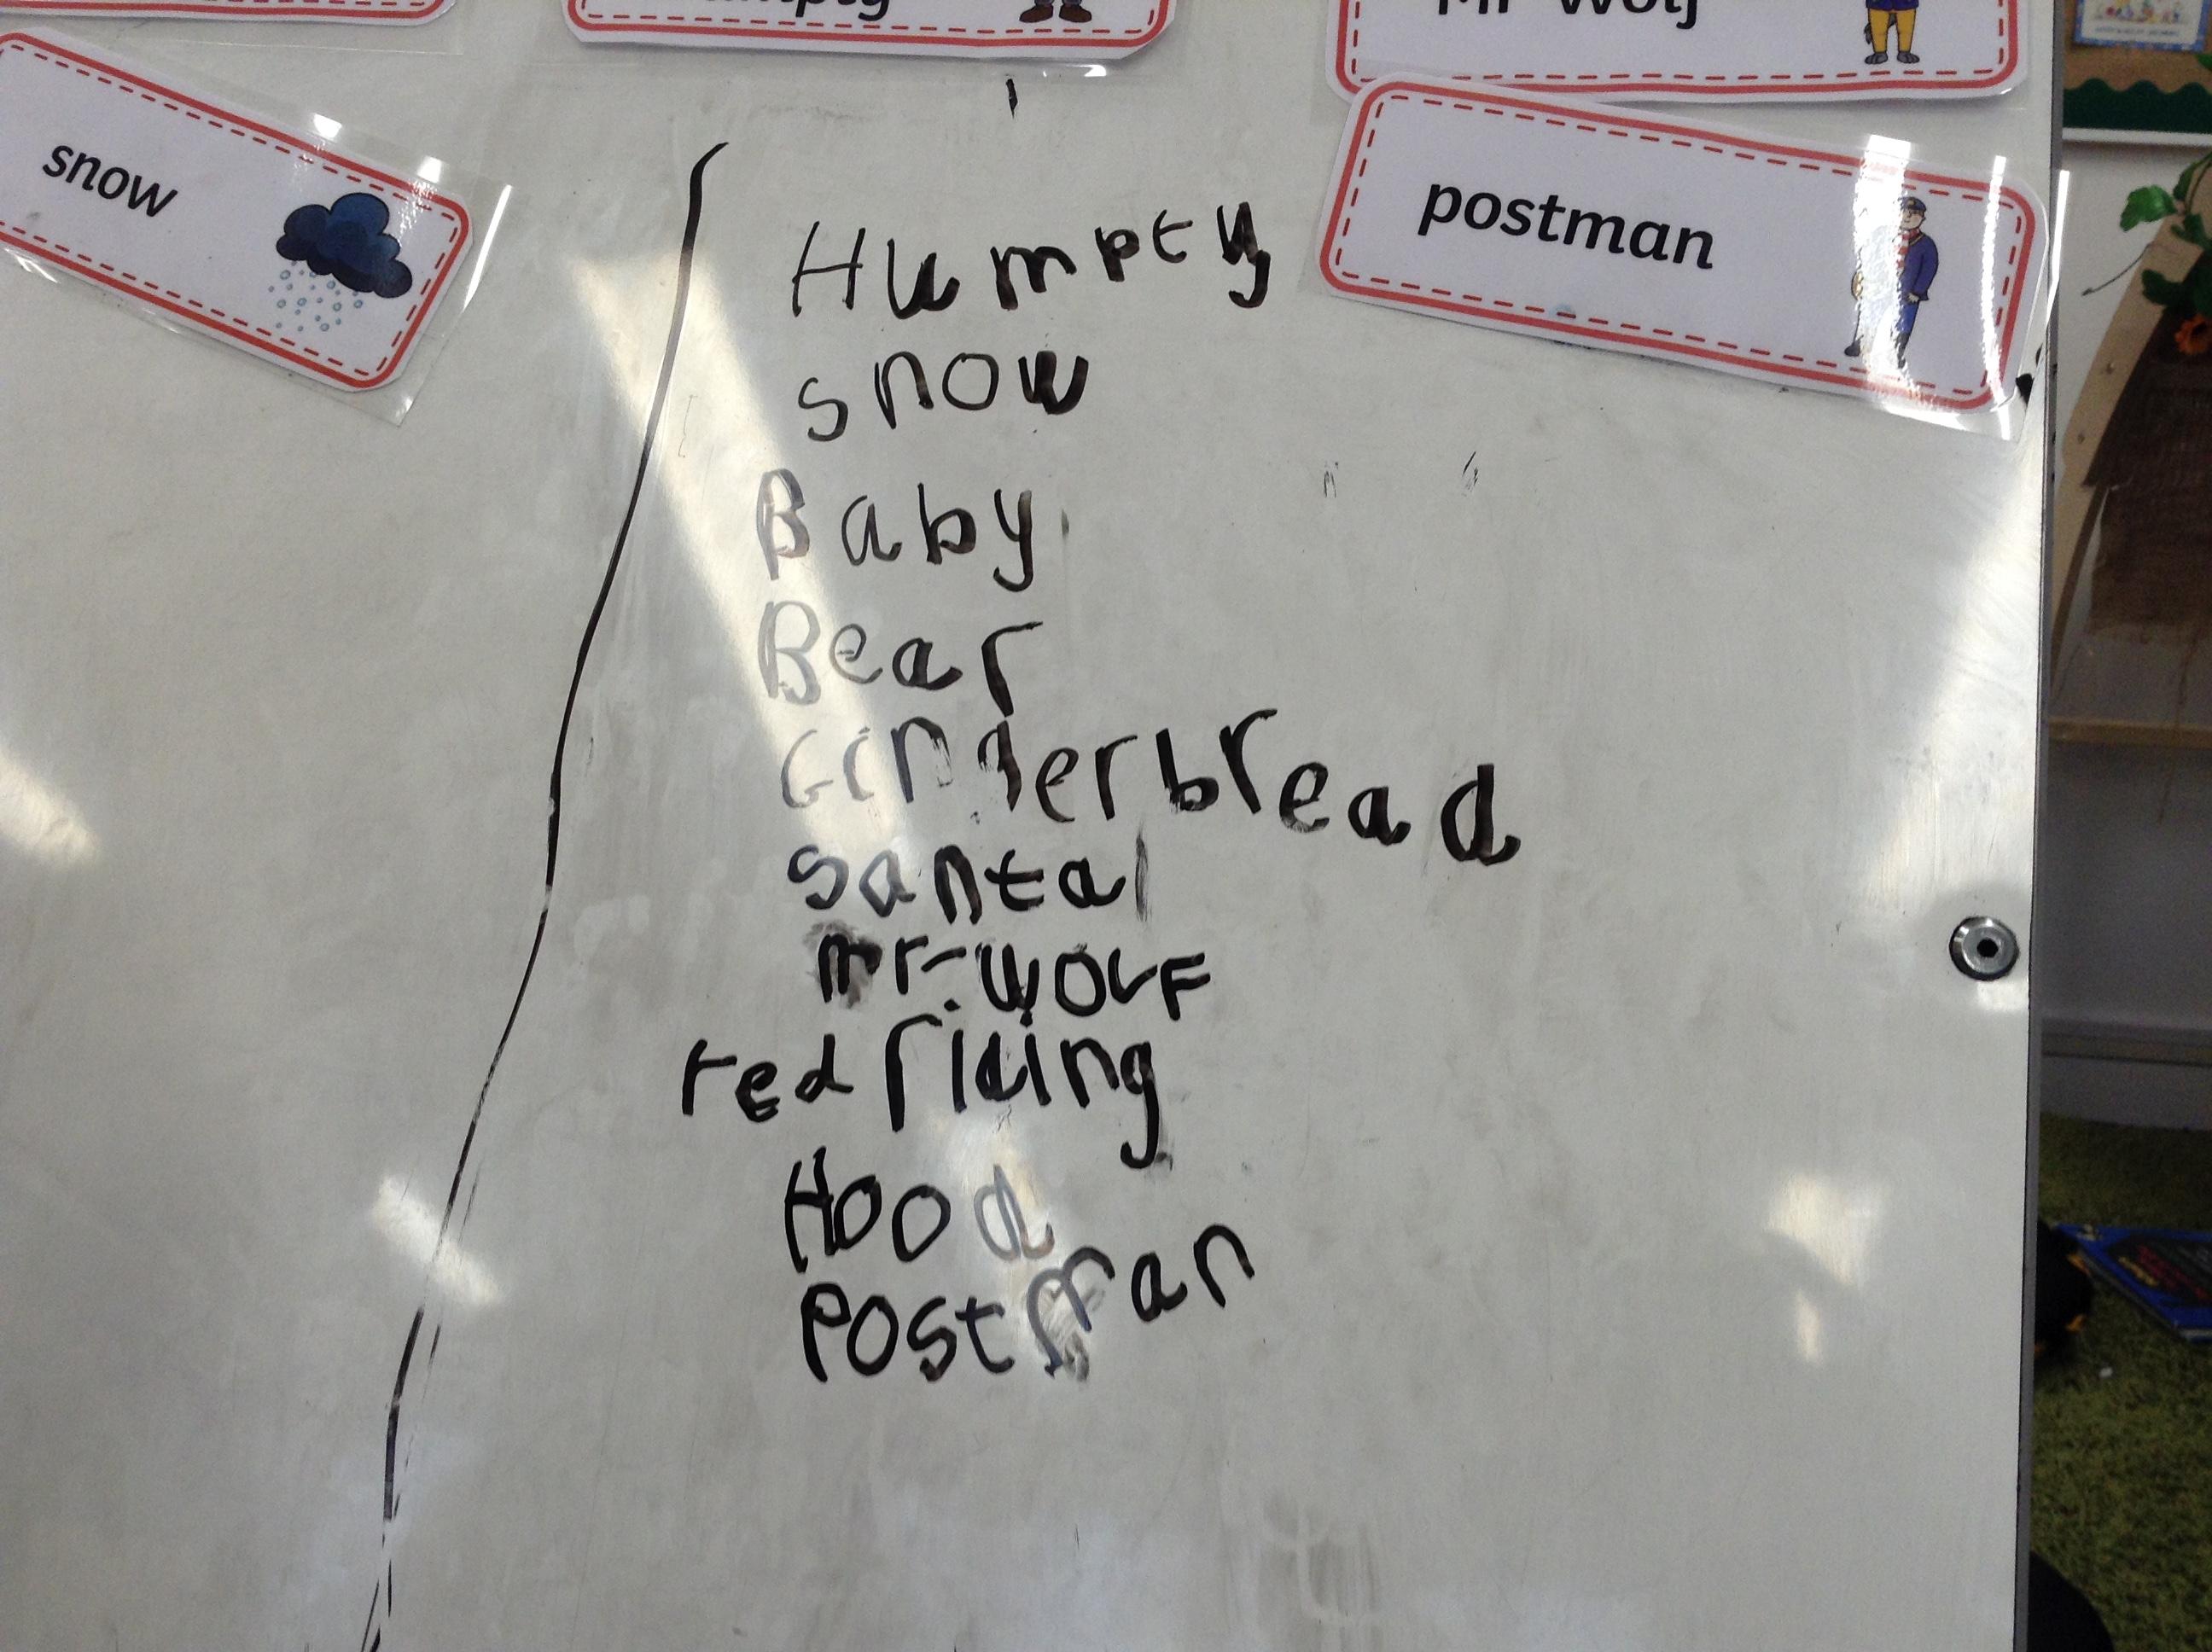 Mr Wolf
snow
postman
Humpty
snow
Baby
Bear
Gingerbread
santa
mr-wolf
red riding
Hood
Postman